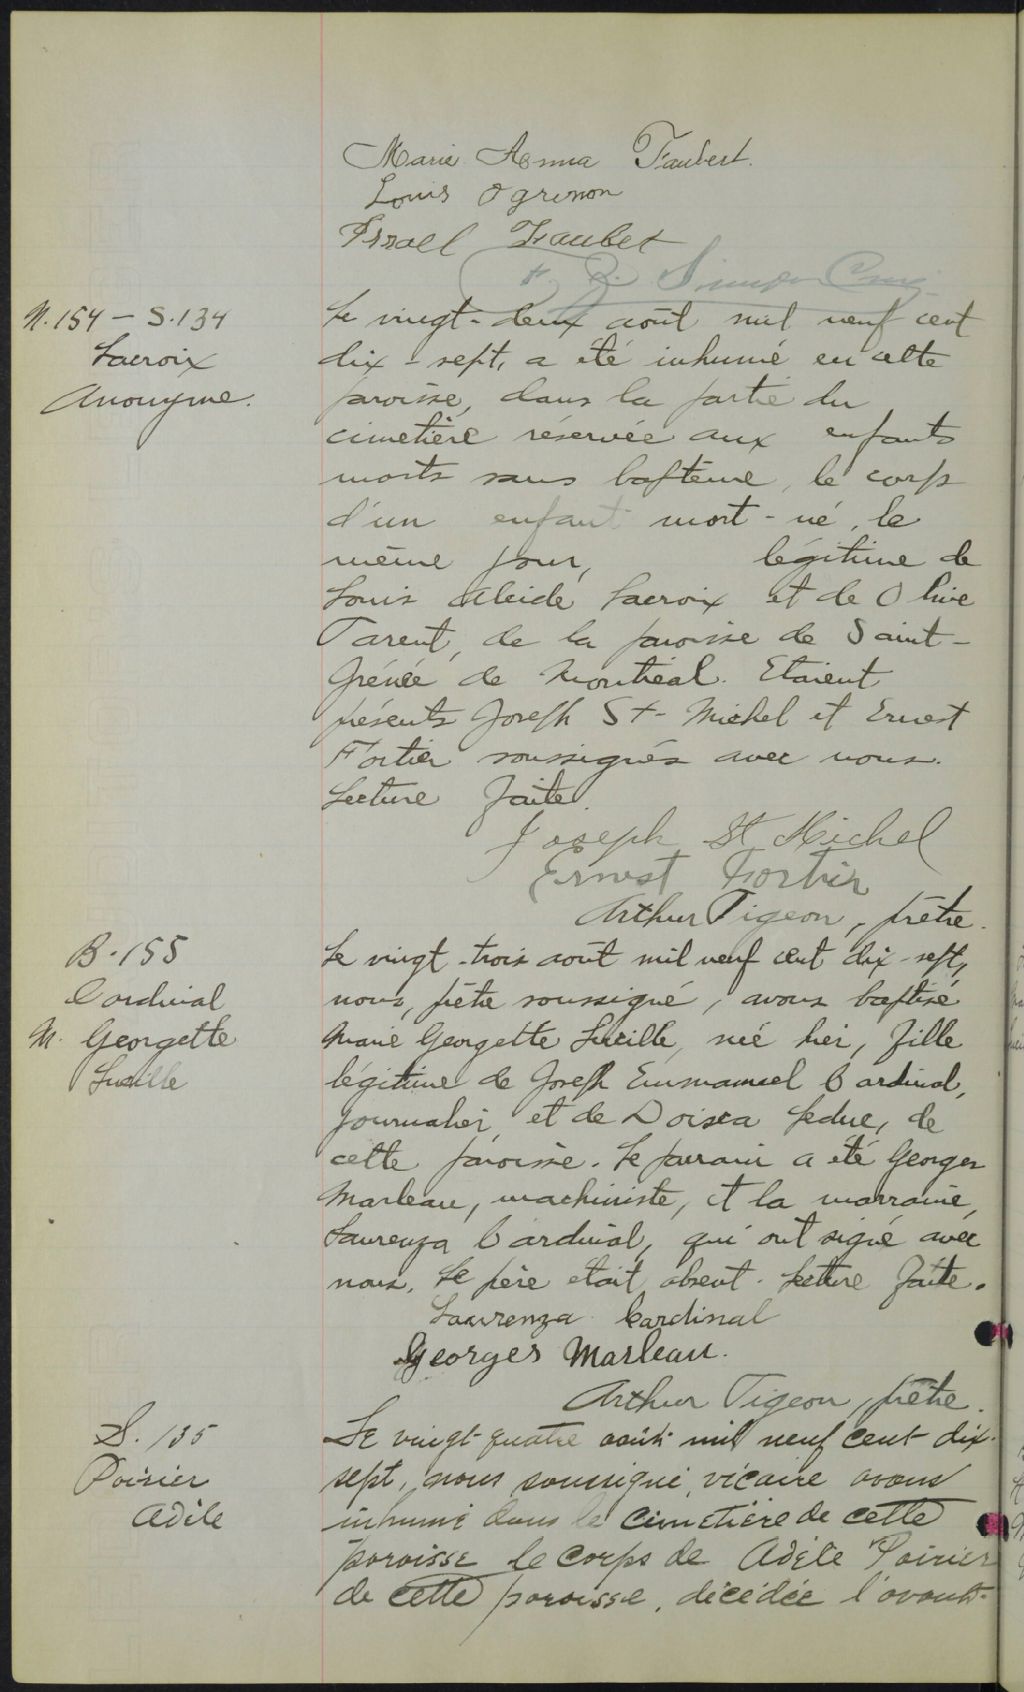 Marie Anna Faubert.
Louis Ogrinon
Israel Faubert
N. 154 — S. 134
Lacroix
Anonyme.
Le vingt-deux août mil neuf cent
dix-sept, a été inhumé en cette
paroisse, dans la partie du
cimetière réservée aux enfants
morts sans baptême, le corps
d'un enfant mort-né, le
même jour, légitime de
Louis Alcide Lacroix et de Olive
Parent, de la paroisse de Saint-
Irénée de Montréal. Etaient
présents Joseph St-Michel et Ernest
Fortier soussignés avec nous.
Lecture faite.
Joseph St Michel
Ernest Fortier
Arthur Pigeon, prêtre.
B. 155
Cardinal
M. Georgette
Lucille
Le vingt-trois août mil neuf cent dix-sept,
nous, prêtre soussigné, avons baptisé
Marie Georgette Lucille, née hier, fille
légitime de Joseph Emmanuel Cardinal,
journalier, et de Doisca Leduc, de
cette paroisse. Le parrain a été Georges
Marleau, machiniste, et la marraine,
Laurenza Cardinal, qui ont signé avec
nous. Le père était absent. Lecture faite.
Laurenza Cardinal
Georges Marleau.
Arthur Pigeon, prêtre.
S. 135
Poirier
Adèle
Le vingt-quatre août mil neuf cent dix-
sept, nous soussigné, vicaire avons
inhumé dans le cimetière de cette
paroisse le corps de Adèle Poirier
de cette paroisse, décédée l'avant-